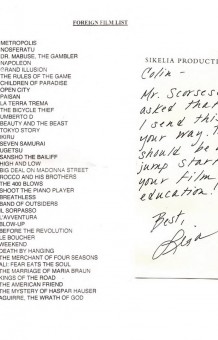 FOREIGN FILM LIST
METROPOLIS
NOSFERATU
DR. MABUSE, THE GAMBLER
NAPOLEON
GRAND ILLUSION
THE RULES OF THE GAME
CHILDREN OF PARADISE
OPEN CITY
PAISAN
LA TERRA TREMA
THE BICYCLE THIEF
UMBERTO D
BEAUTY AND THE BEAST
TOKYO STORY
IKIRU
SEVEN SAMURAI
UGETSU
SANSHO THE BAILIFF
HIGH AND LOW
BIG DEAL ON MADONNA STREET
ROCCO AND HIS BROTHERS
THE 400 BLOWS
SHOOT THE PIANO PLAYER
BREATHLESS
BAND OF OUTSIDERS
IL SORPASSO
L'AVVENTURA
BLOW-UP
BEFORE THE REVOLUTION
LE BOUCHER
WEEKEND
DEATH BY HANGING
THE MERCHANT OF FOUR SEASONS
ALI: FEAR EATS THE SOUL
THE MARRIAGE OF MARIA BRAUN
KINGS OF THE ROAD
THE AMERICAN FRIEND
THE MYSTERY OF KASPAR HAUSER
AGUIRRE, THE WRATH OF GOD
SIKELIA PRODUCT
Colin -
Mr. Scorsese
asked that
I send this
your way. T
should be a
jump start
your film
education!
Best,